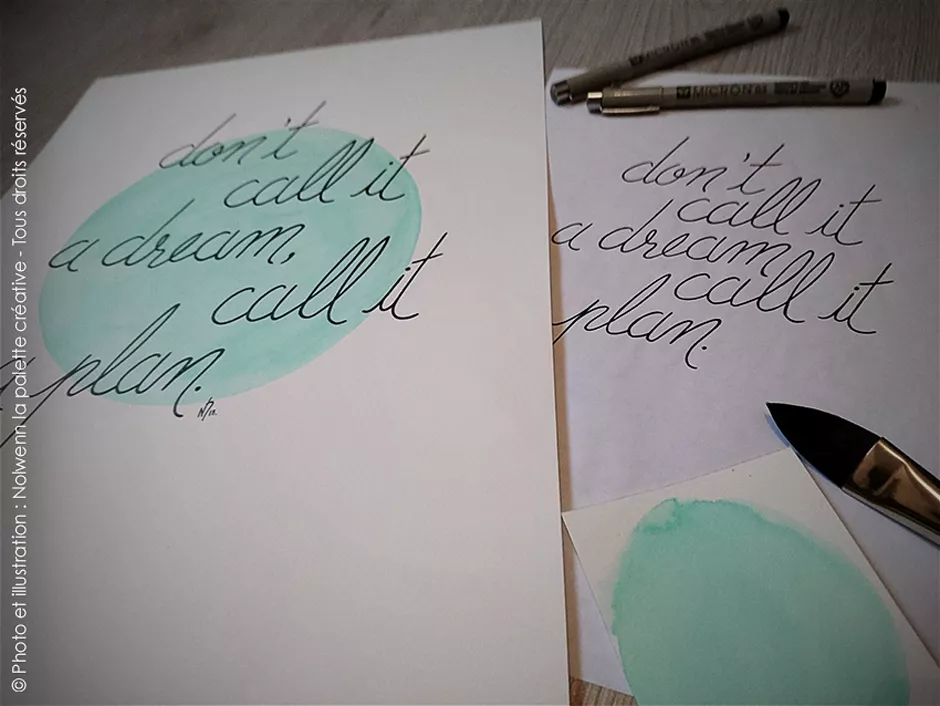 don't
call it
a dream,
call it
a plan.
don't
call it
a dream
call it
plan.
MICRON
MICRON
© Photo et illustration : Nolwenn la palette créative - Tous droits réservés